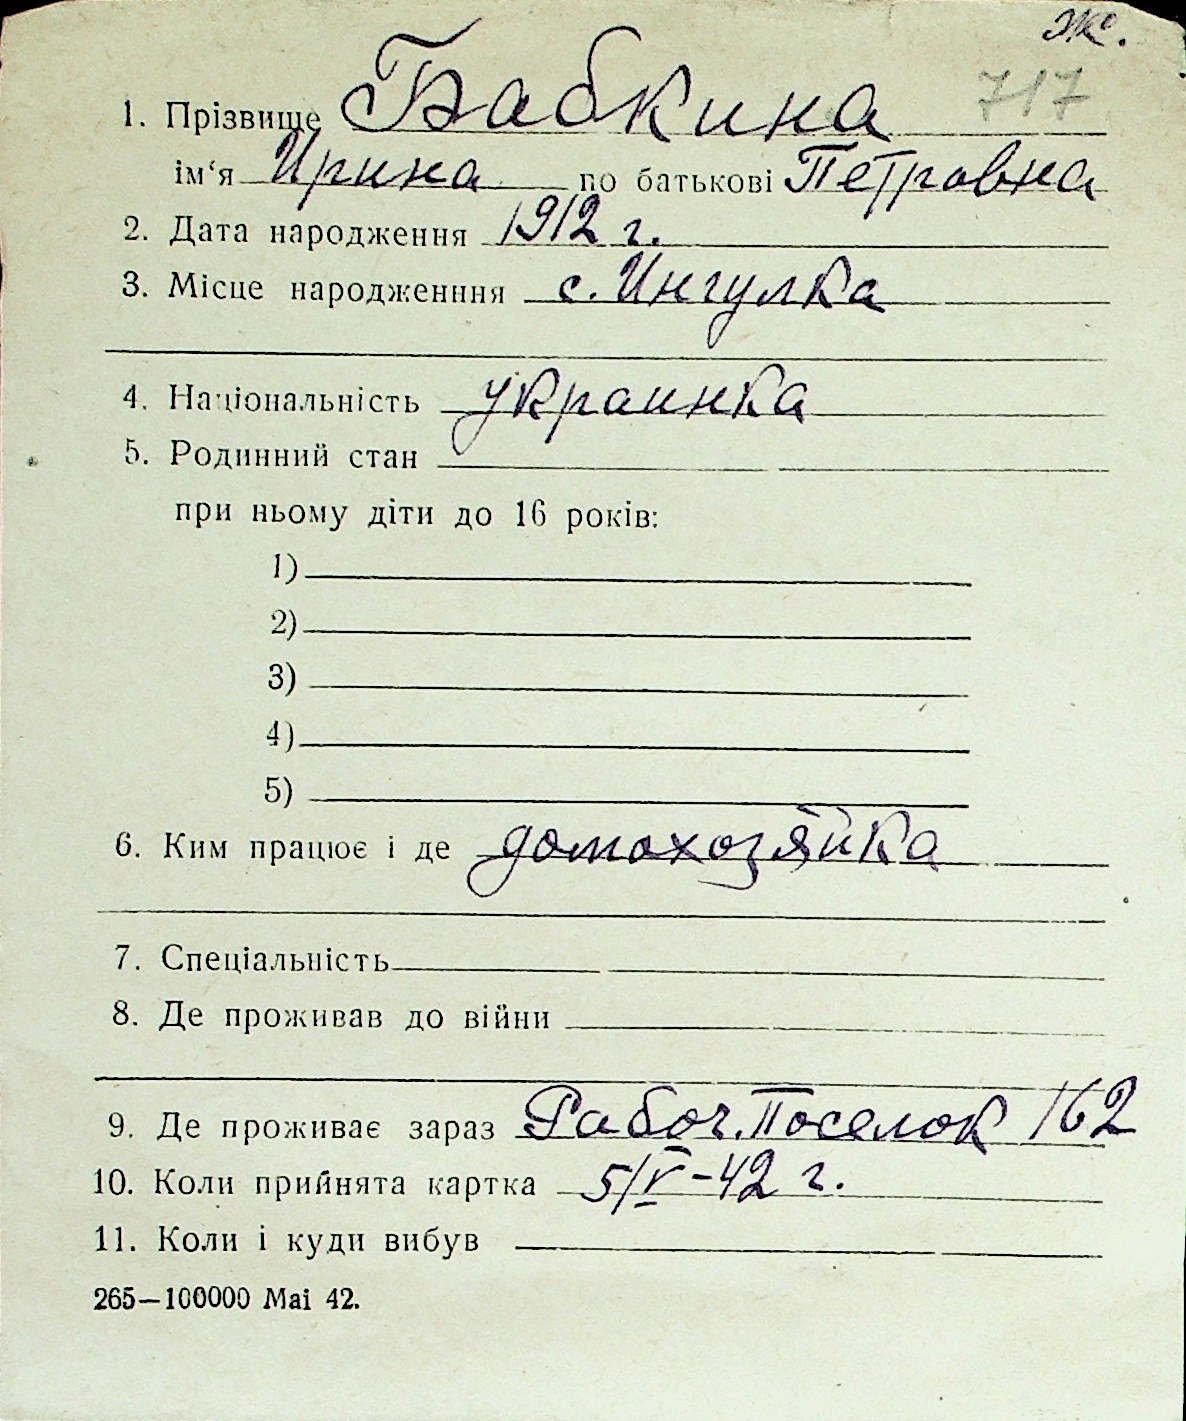 Ж.
717
1. Прізвище Бабкина
ім‘я Ирина по батькові Петровна
2. Дата народження 1912 г.
3. Місце народженння с. Ингулка
4. Національність украинка
5. Родинний стан
при ньому діти до 16 років:
1)
2)
3)
4)
5)
6. Ким працює і де домохозяйка
7. Спеціальність
8. Де проживав до війни
9. Де проживає зараз Рабоч. Поселок 162
10. Коли прийнята картка 5/V-42 г.
11. Коли і куди вибув
265—100000 Маі 42.